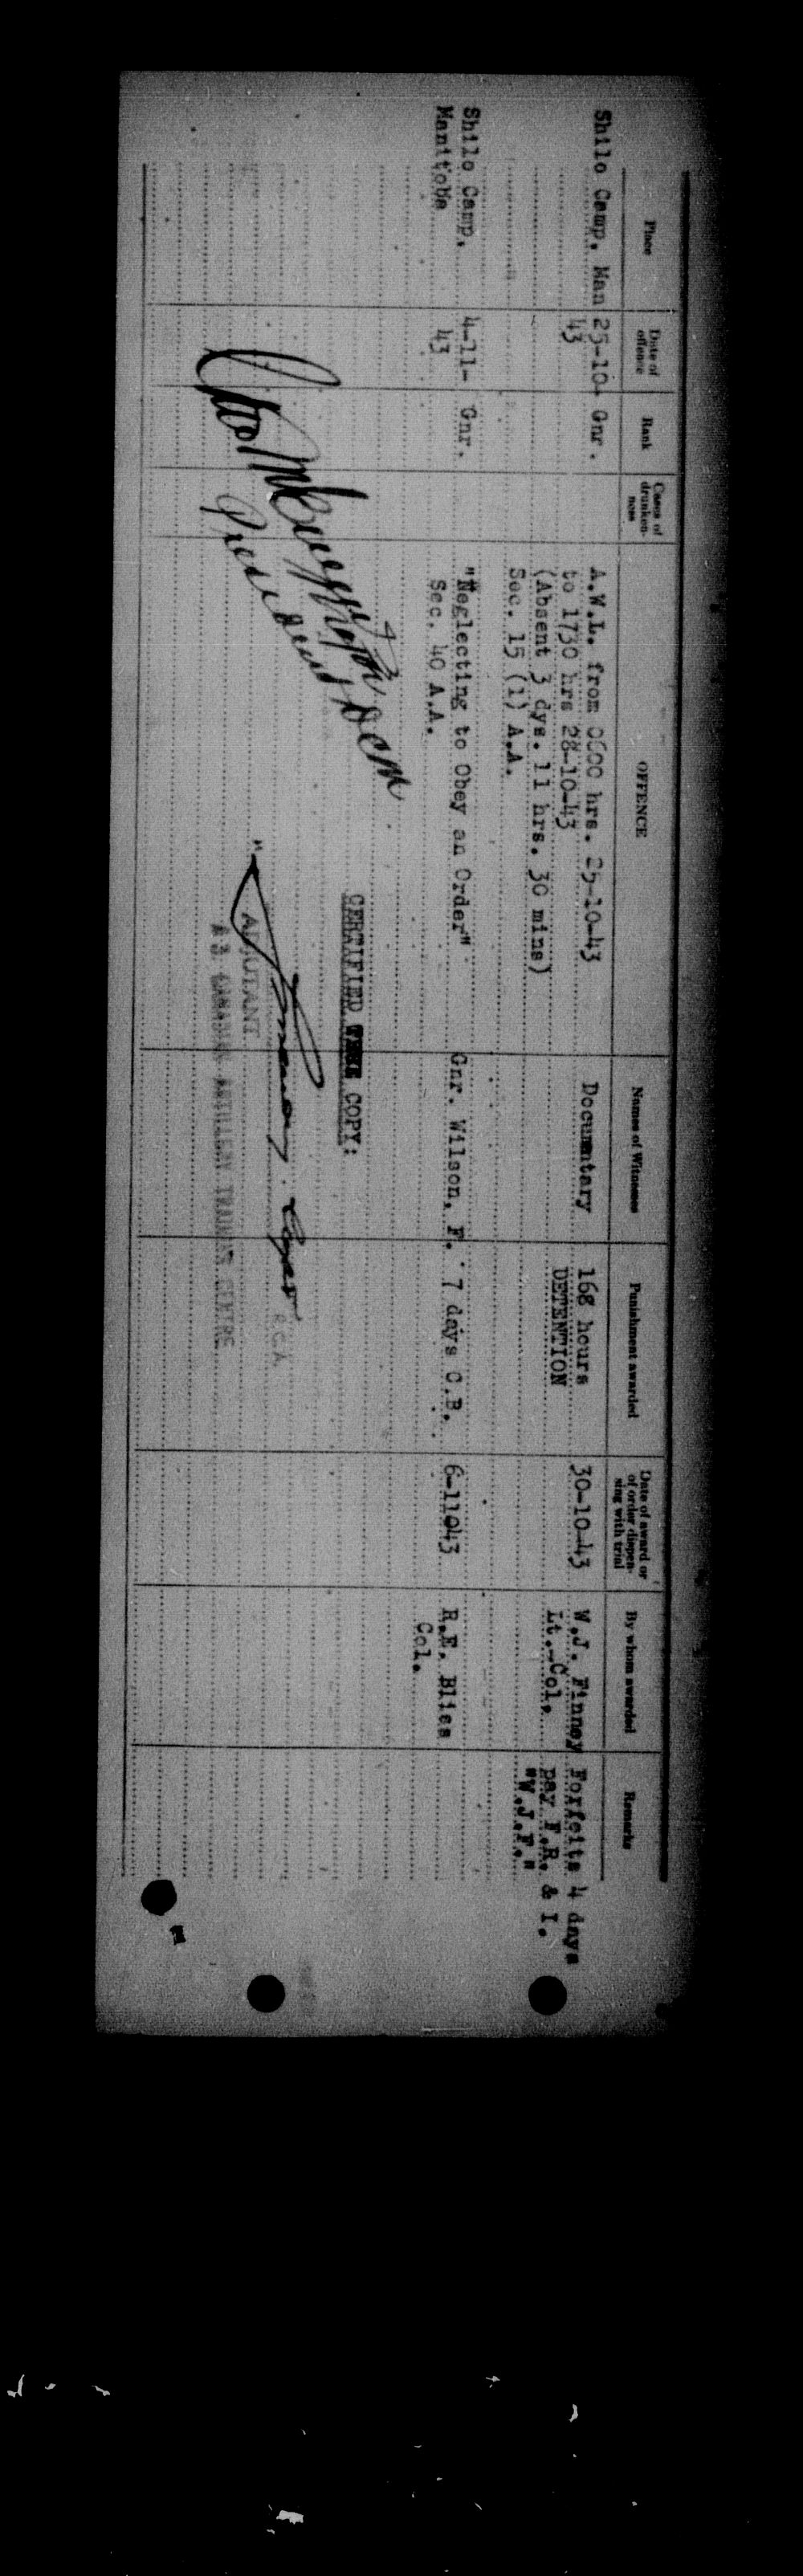 Place Date of offence Rank Cases of drunken-ness OFFENCE Names of Witnesses Punishment awarded Date of award or of order dispen-sing with trial By whom awarded Remarks
Shilo Camp, Man 25-10- Gnr. A.W.L. from 0600 hrs. 25-10-43 Documntary 168 hours 30-10-43 W.J. Finney Forfeits 4 days
43 to 1730 hrs 28-10-43 DETENTION Lt.-Col. pay F.R. & I.
(Absent 3 dys. 11 hrs. 30 mins) "W.J.F."
Sec. 15 (1) A.A.
Shilo Camp, 4-11- Gnr. "Neglecting to Obey an Order" Gnr. Wilson, F. 7 days C.B. 6-11043 R.E. Bliss
Manitoba 43 Sec. 40 A.A. Col.
CERTIFIED TRUE COPY:
President DCM
R.C.A.
ADJUTANT
A 3 CANADIAN ARTILLERY TRAINING CENTRE